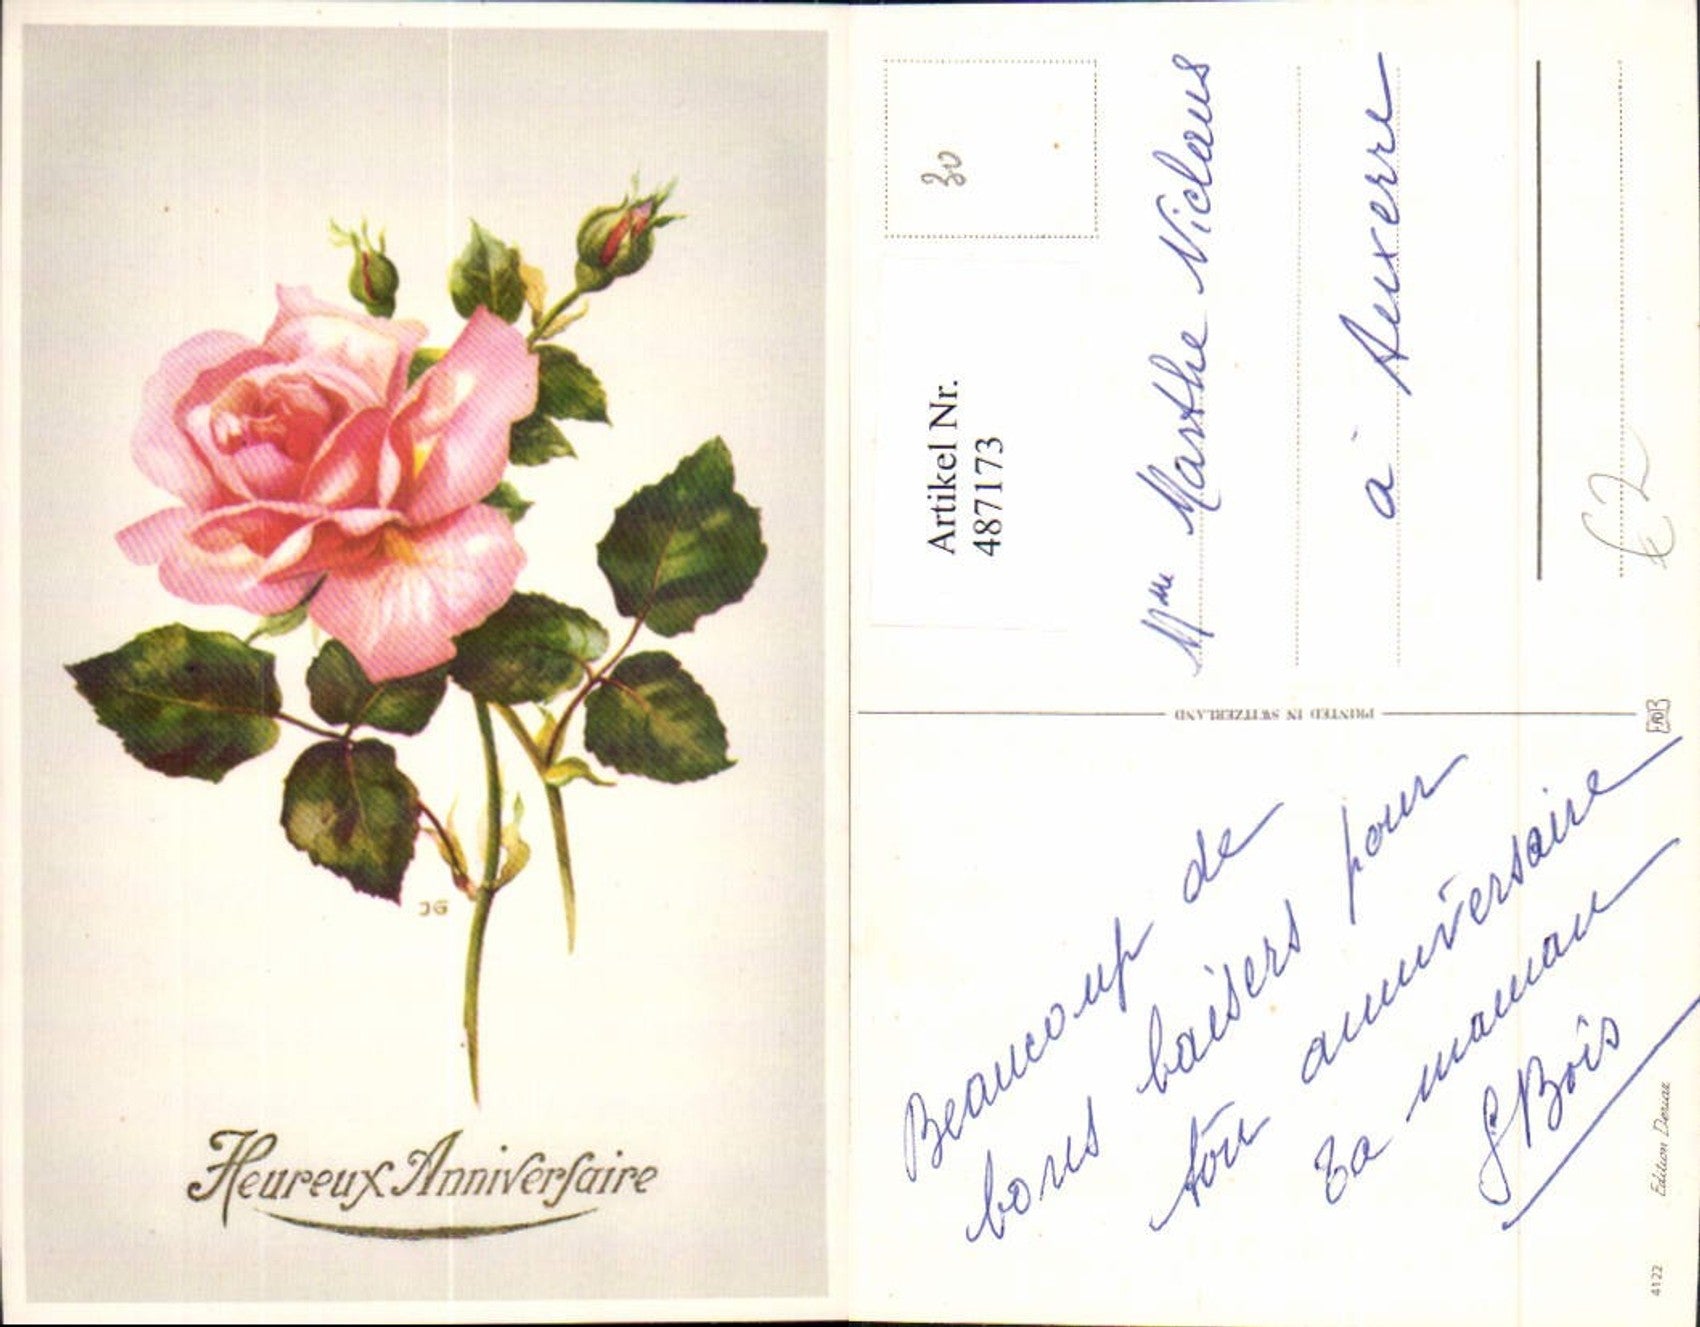 Heureux Anniversaire
JG
30
Artikel Nr.
487173
Mme Marthe Niclaus
à Auxerre
€ 2
PRINTED IN SWITZERLAND
Beaucoup de
bons baisers pour
ton anniversaire
Ta maman
G Bois
4122
Edition Deriaz